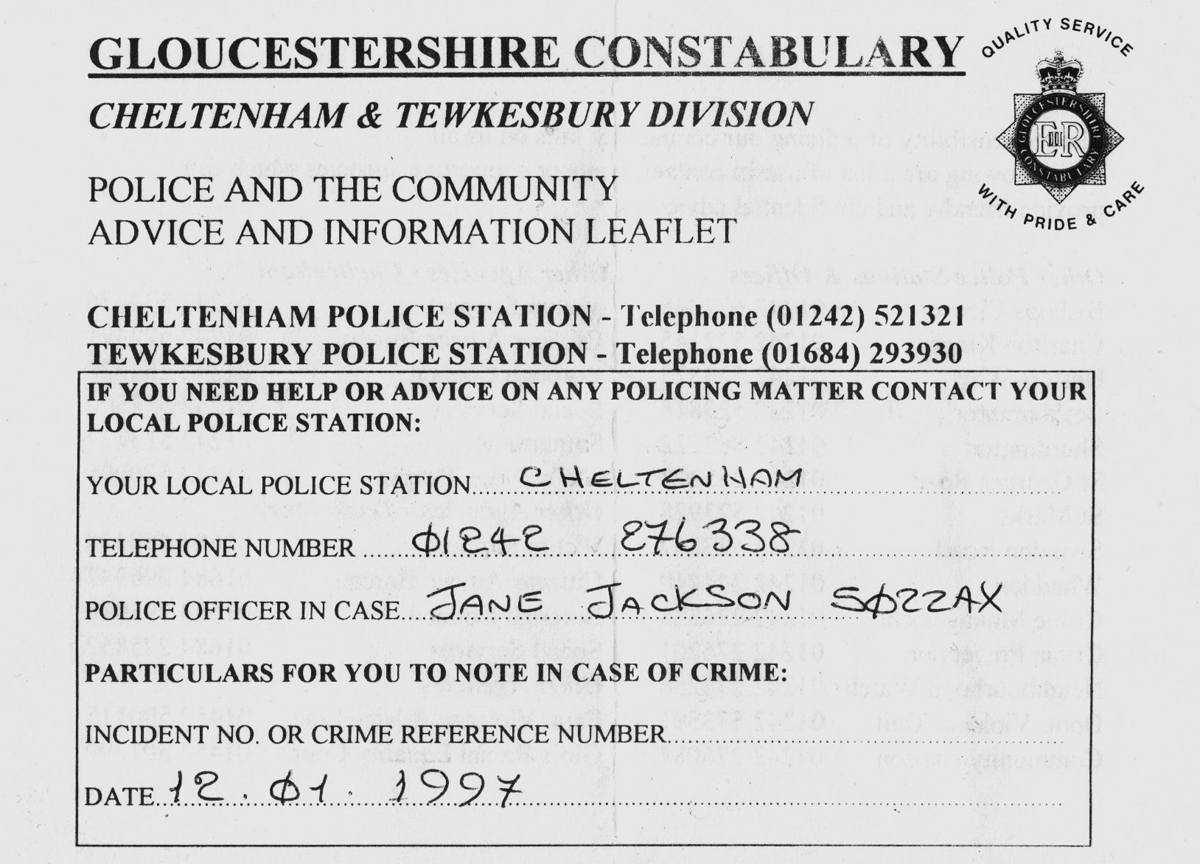 GLOUCESTERSHIRE CONSTABULARY
QUALITY SERVICE
GLOUCESTERSHIRE CONSTABULARY
EIIR
WITH PRIDE & CARE
CHELTENHAM & TEWKESBURY DIVISION
POLICE AND THE COMMUNITY
ADVICE AND INFORMATION LEAFLET
CHELTENHAM POLICE STATION - Telephone (01242) 521321
TEWKESBURY POLICE STATION - Telephone (01684) 293930
IF YOU NEED HELP OR ADVICE ON ANY POLICING MATTER CONTACT YOUR
LOCAL POLICE STATION:
YOUR LOCAL POLICE STATION CHELTENHAM
TELEPHONE NUMBER 01242 276338
POLICE OFFICER IN CASE JANE JACKSON SØ22AX
PARTICULARS FOR YOU TO NOTE IN CASE OF CRIME:
INCIDENT NO. OR CRIME REFERENCE NUMBER
DATE 12.01.1997